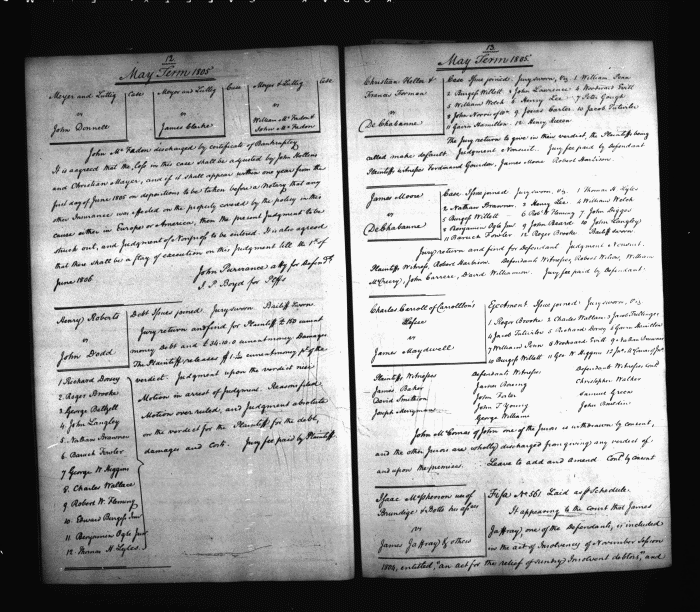 12
May Term 1805
Meyer and Luttig Case
vs
John Donnell
Meyer and Luttig Case
vs
James Clarke
Meyer & Luttig Case
vs
William McFadon &
John McFadon
John McFadon discharged by certificate of Bankruptcy
It is agreed that the Loss in this case shall be adjusted by John Hollins
and Christian Mayer, and if it shall appear within one year from the
first day of June 1805 on depositions to be taken before a Notary that any
other Insurance was effected on the property covered by the policy in this
cause either in Europe or America, then the present Judgment to be
struck out, and Judgment of Nonpros to be entered. It is also agreed
that there shall be a stay of execution on this Judgment till the 1st of
June 1806.
John Purviance atty for Defendt
J. P. Boyd for Plffs
Henry Roberts
vs
John Dodd
Debt Issues joined. Jury sworn Bailiff sworn
Jury return and find for Plaintiff £150 current
money debt and £ current money Damages
The Plaintiff releases current money pt of the
verdict. Judgment upon the verdict nisi
Motion in arrest of Judgment. Reasons filed
Motion overruled, and Judgment absolute
on the verdict for the Plaintiff for the debt,
damages and costs. Jury fee paid by Plaintiff.
1 Richard Dorsey
2 Roger Brooke
3 George Baltzell
4 John Langley
5 Nathan Brawner
6 Baruch Fowler
7 George W. Higgins
8 Charles Wallace
9 Robert W. Fleming
10 Edward Burgess Junr
11 Benjamin Ogle Junr
12 Thomas H. Lyles
13
May Term 1805
Christian Keller &
Francis Forman
vs
DeChabanne
Case Issue joined. Jury sworn, Viz 1 William Penn
2 Burgess Willett 3 John Lawrence 4 Woodward Evitt
5 William Welch 6 Henry Lee 7 Peter Gough
8 John Norris of Wm 9 Josias Carter 10 Jacob Tulivler
11 Gavin Hamilton 12 Henry Keene
The Jury return to give in their verdict, the Plaintiffs being
called make default. Judgment of Nonsuit. Jury fee paid by Defendant
Plaintiffs witnesses Ferdinand Gourdon, James Moore Robert Harrison.
James Moore
vs
DeChabanne
Case Issue joined Jury sworn, Viz 1 Thomas H Lyles
2 Nathan Brawner. 3 Henry Lee 4 William Welch
5 Burgess Willett 6 Robt W Fleming 7 John Digges
8 Benjamin Ogle Junr 9 John Read 10 John Langley
11 Baruch Fowler 12 Roger Brooke Bailiff sworn
Jury return and find for Defendant Judgment of Nonsuit.
Plaintiffs Witness, Robert Harrison. Defendants Witnesses, Robert Wilson, William
McCreery, John Carrere, David Williamson. Jury fee paid by Defendant.
Charles Carroll of Carrollton's
Lessee
vs
James Maydwell
Ejectment Issue joined Jury sworn, Viz
1 Roger Brooke 2 Charles Wallace 3 Jacob
4 Jacob Tulivler 5 Richard Dorsey 6 Gavin Hamilton
7 William Penn 8 Woodward Evitt 9 Nathan Brawner
10 Burgess Willett 11 Geo W Higgins 12 of Jno
Plaintiffs Witnesses
James Baker
David Smithson
Joseph Merryman
Defendants Witness.
Jason Boring
John Tater
John T Young
George Williams
Defendants Witness Contd
Christopher Walker
Samuel Green
John Bouldin
John McComas of John one of the Jurors is withdrawn by consent,
and the other Jurors are wholly discharged from giving any verdict of.
and upon the premises. Leave to add and amend. Contd by consent
Isaac McPherson use of
Brundige & Botts use of
vs
James Jaffray & others
Fifa No 561 Laid as pr Schedule.
It appearing to the court that James
Jaffray, one of the Defendants, is included
in the act of Insolvency of November Session
1804, entitled, "an act for the relief of sundry Insolvent debtors," and